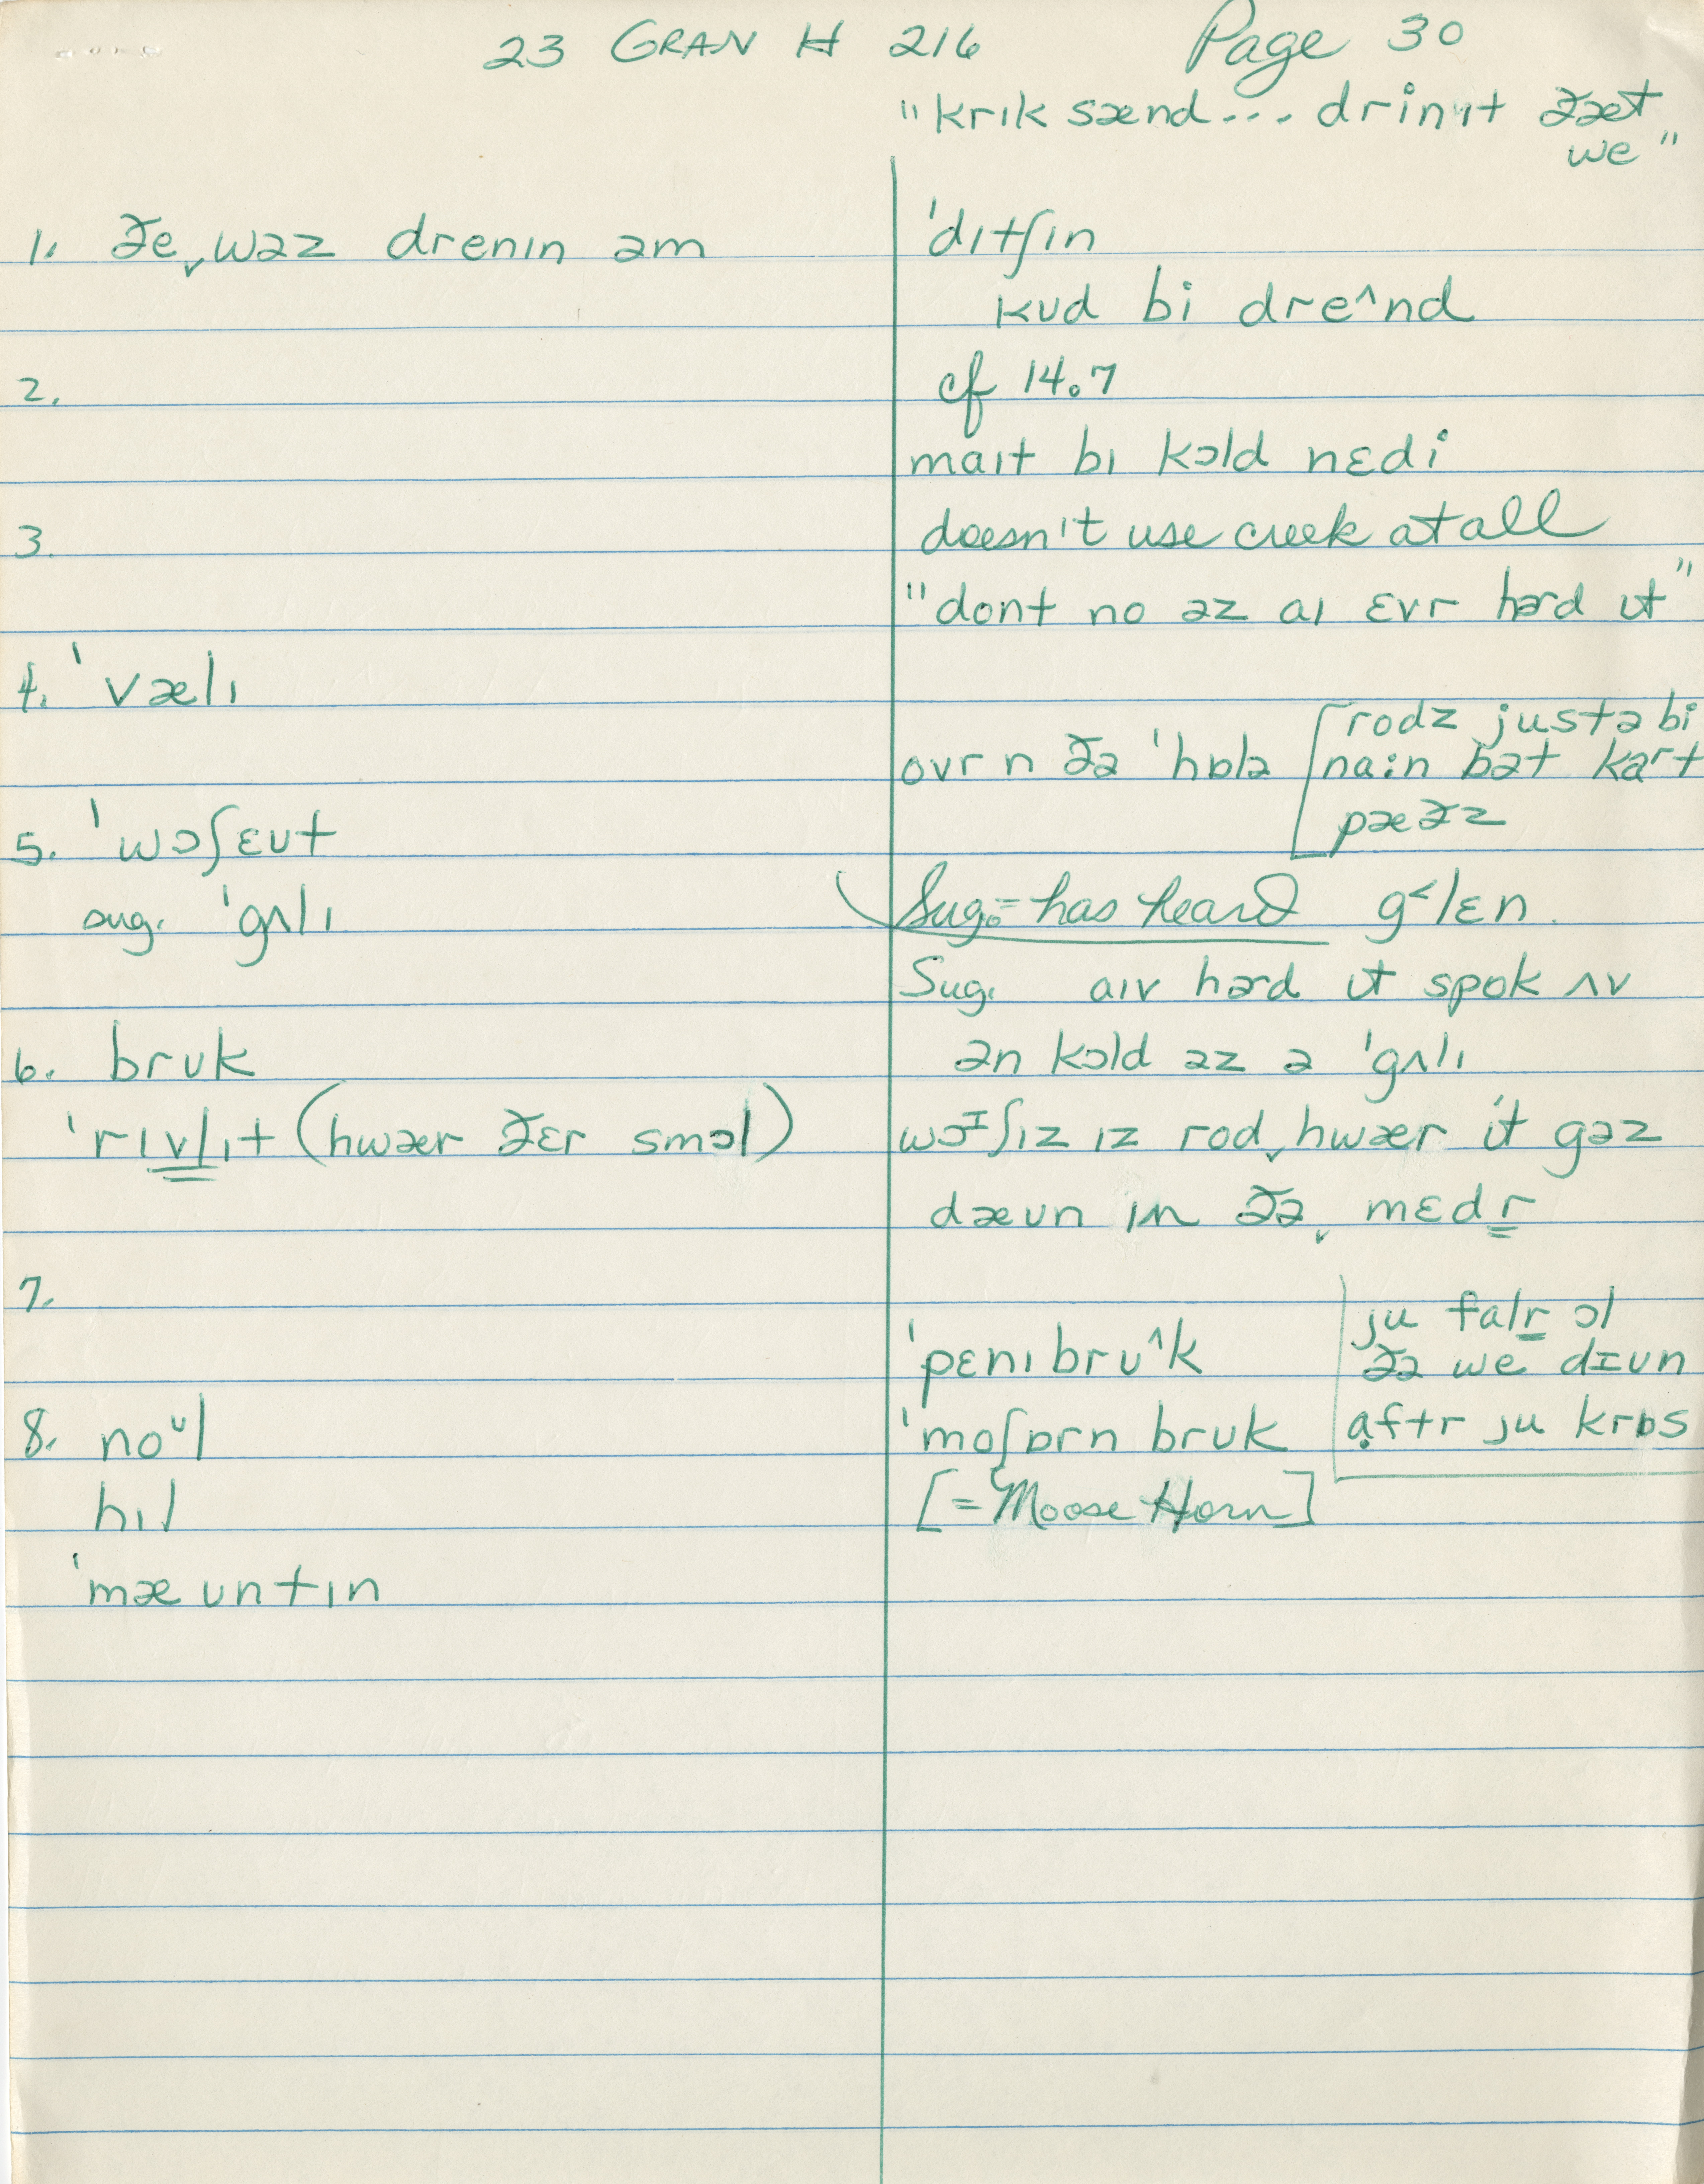 23 GRAN H 216 Page 30
"krɪk sænd... drinɪt ðæt
we"
1. ðe ˬwəz drenɪn əm
ˈdɪtʃɪn
kʊd bi dre^nd
2. cf 14.7
maɪt bɪ kɔld nɛdi
3. doesn't use creek at all
"dont no əz aɪ ɛvr hərd ɪt"
4. ˈvælɪ
ovr n ðə ˈhɒlə [rodz justə bi
na:n bət kart
pæðz
5. ˈwɔʃɛʊt
Sug. = has heard g˂lɛn.
sug. ˈgʌlɪ
Sug. aɪv hərd ɪt spok ʌv
ən kɔld əz ə ˈgʌlɪ
6. bruk
ˈrɪvlɪt (hwær ðɛr smɔl)
wɔɪʃɪz ɪz rod ˬhwær it gəz
dæʊn ɪn ðə ˬmɛdr
7. ˈpɛnɪ brʊ^k
ˈmoʃɒrn brʊk
[= Moose Horn]
ju falr ɔl
ðə we dɪʊn
aftr ju krɒs
8. noᶸl
hɪl
ˈmæʊntɪn